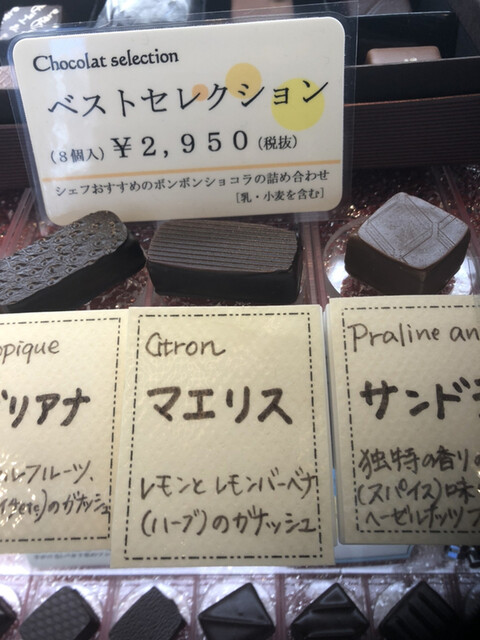 Chocolat selection
ベストセレクション
(8個入) ¥2,950 (税抜)
シェフおすすめのボンボンショコラの詰め合わせ
[乳・小麦を含む]
opique
リアナ
ルフルーツ、
etc)のガナッシュ
Citron
マエリス
レモンとレモンバーベナ
(ハーブ)のガナッシュ
Praline an
サンド
独特の香りの
(スパイス)味
ヘーゼルナッツ